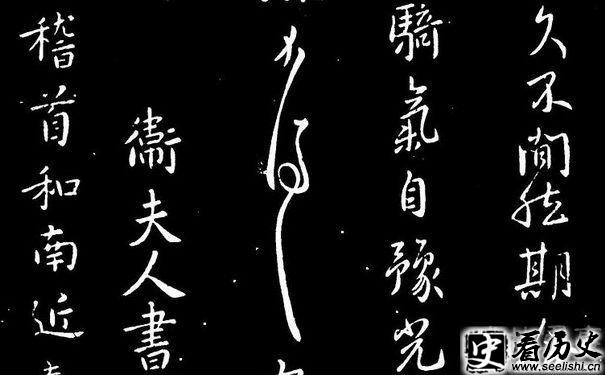 久不間然期
騎氣自豫光
衛夫人書
稽首和南近
史 看历史
www.seelishi.cn